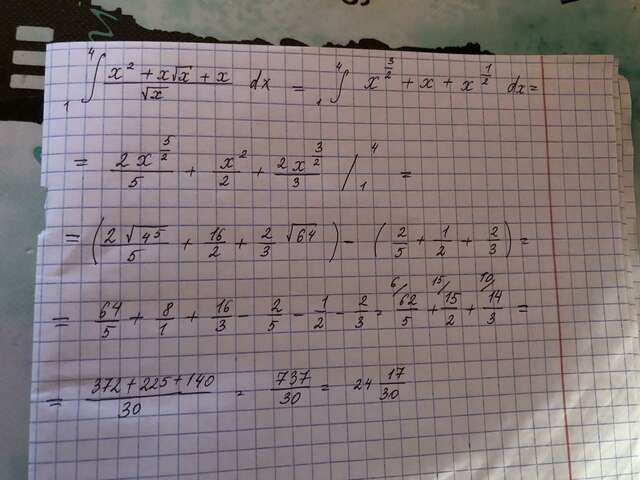 ₁∫⁴ (x² + x√x + x)/√x dx = ₁∫⁴ x^(3/2) + x + x^(1/2) dx =
= 2x^(5/2)/5 + x²/2 + 2x^(3/2)/3 /₁⁴ =
= (2√4⁵/5 + 16/2 + 2/3 √64) - (2/5 + 1/2 + 2/3) =
= 64/5 + 8/1 + 16/3 - 2/5 - 1/2 - 2/3 = ⁶⁄62/5 + ¹⁵⁄15/2 + ¹⁰⁄14/3 =
= (372 + 225 + 140)/30 = 737/30 = 24 17/30